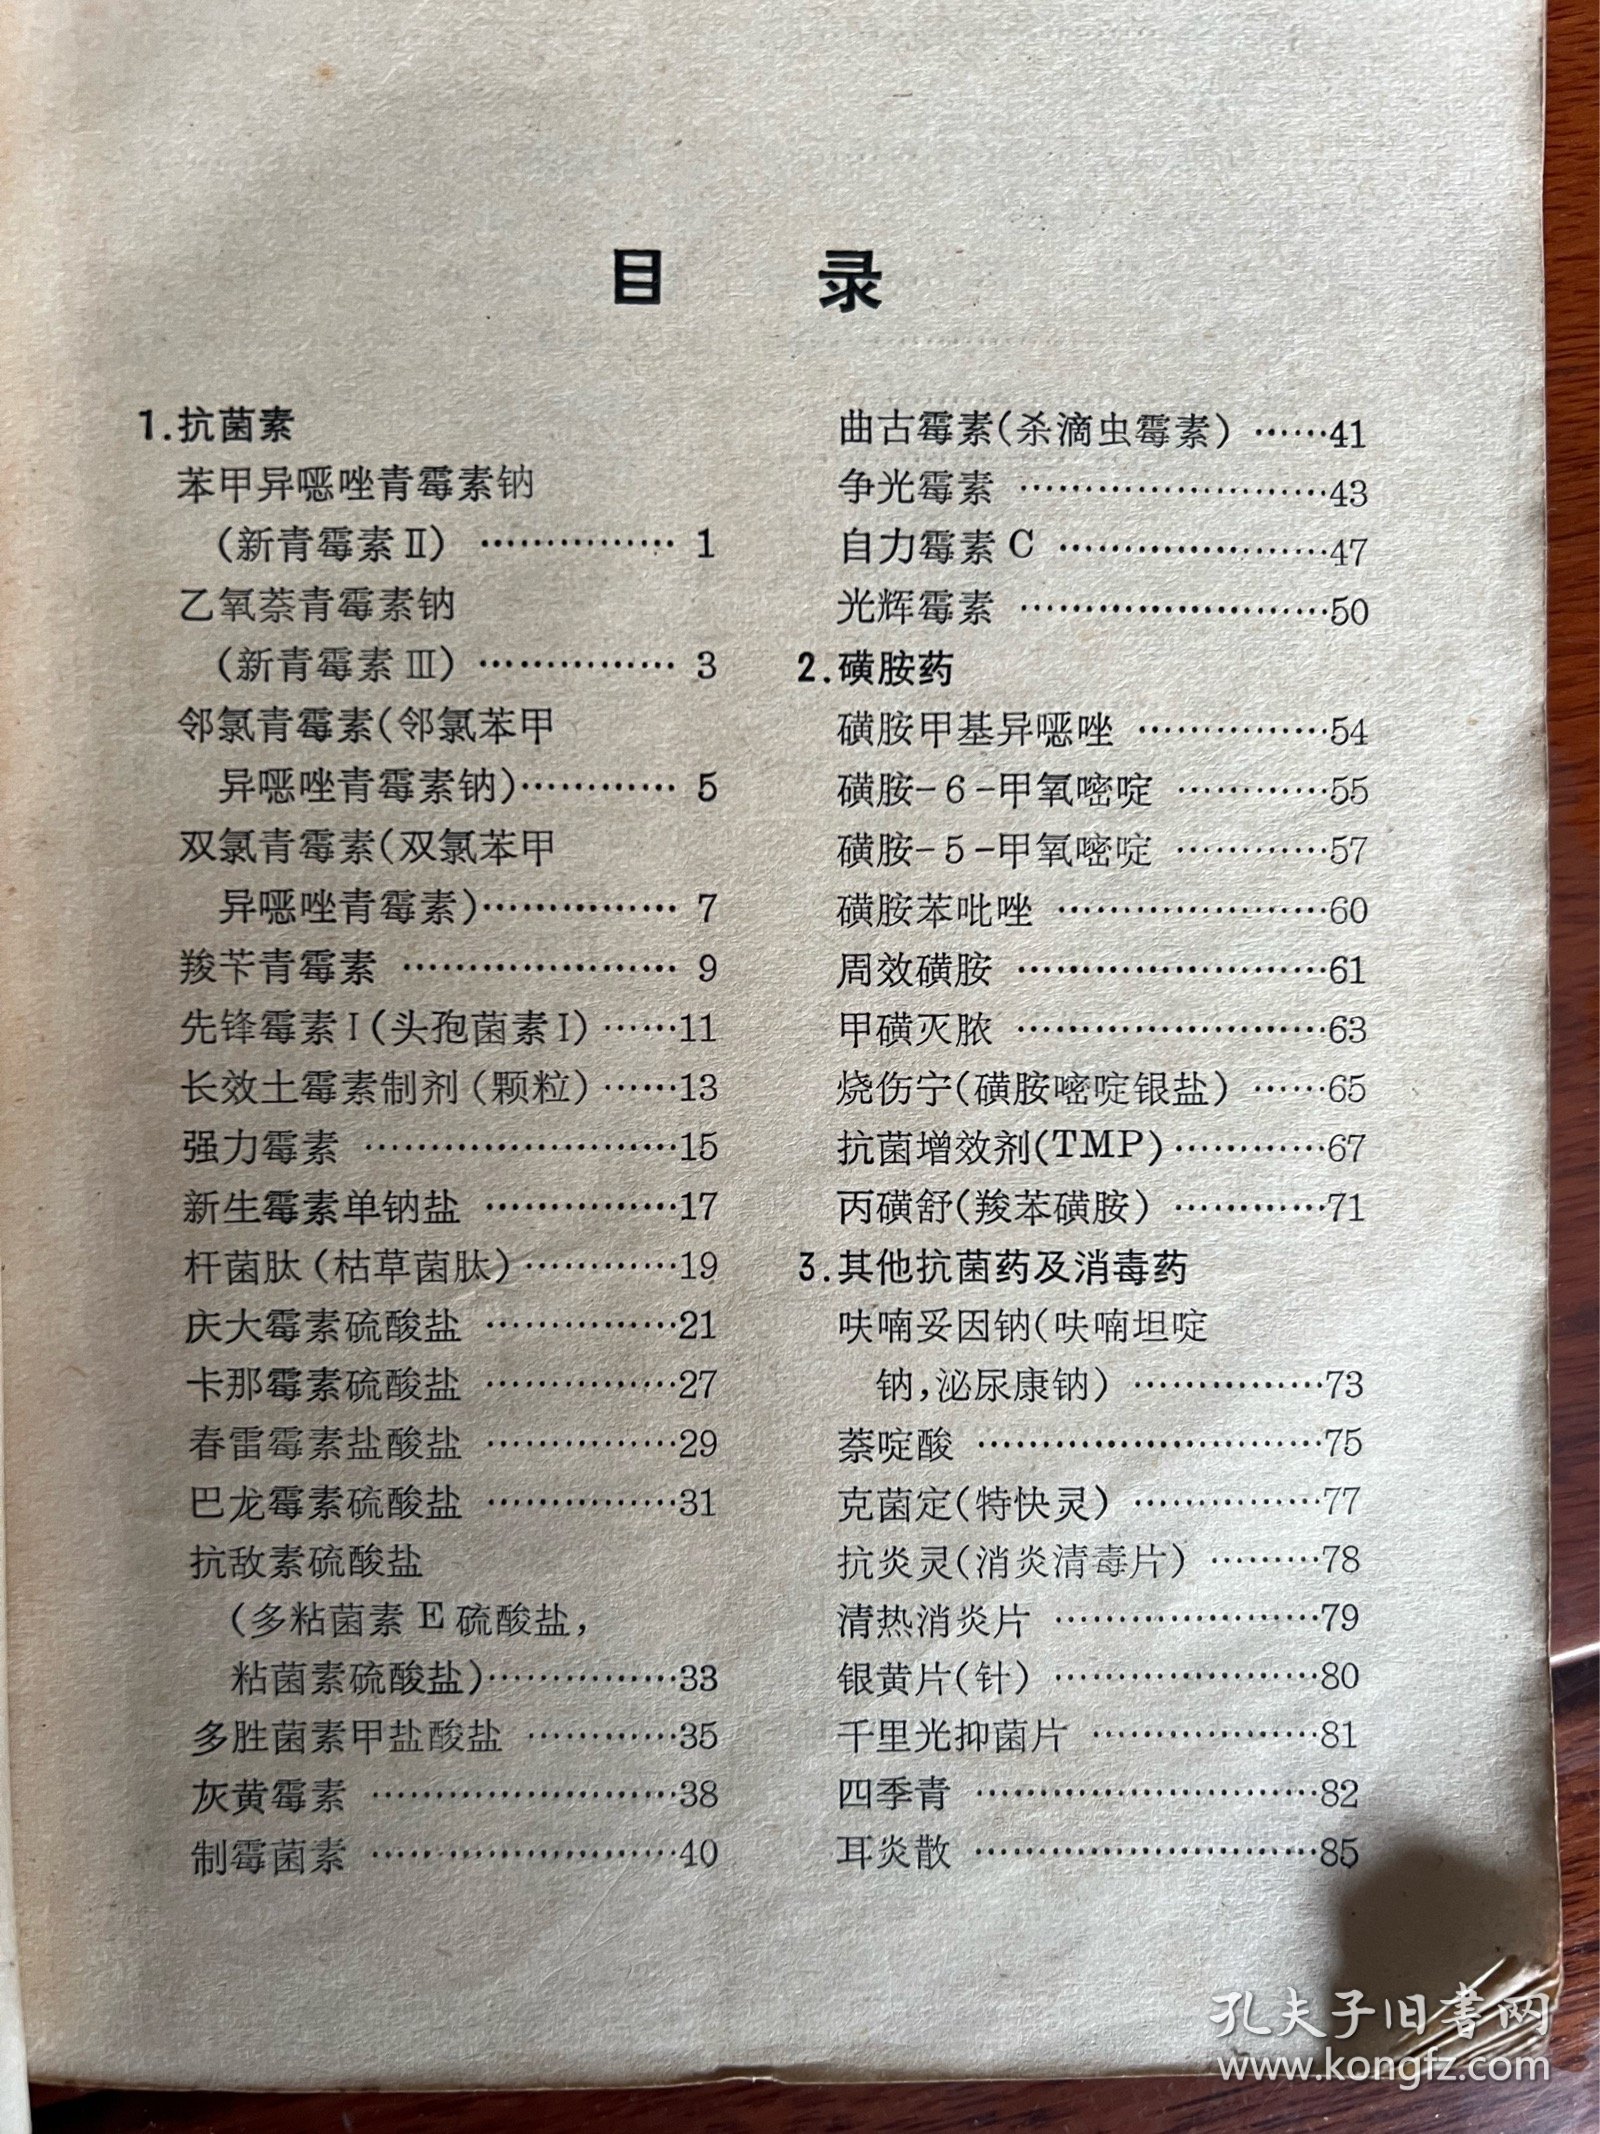 目 录
1.抗菌素
苯甲异噁唑青霉素钠
(新青霉素Ⅱ) …………… 1
乙氧萘青霉素钠
(新青霉素Ⅲ) …………… 3
邻氯青霉素(邻氯苯甲
异噁唑青霉素钠)………… 5
双氯青霉素(双氯苯甲
异噁唑青霉素)…………… 7
羧苄青霉素 ………………… 9
先锋霉素I(头孢菌素I) ……11
长效土霉素制剂(颗粒) ……13
强力霉素 ……………………15
新生霉素单钠盐 ……………17
杆菌肽(枯草菌肽)…………19
庆大霉素硫酸盐 ……………21
卡那霉素硫酸盐 ……………27
春雷霉素盐酸盐 ……………29
巴龙霉素硫酸盐 ……………31
抗敌素硫酸盐
(多粘菌素E硫酸盐,
粘菌素硫酸盐)……………33
多胜菌素甲盐酸盐 …………35
灰黄霉素 ……………………38
制霉菌素 ……………………40
曲古霉素(杀滴虫霉素) ……41
争光霉素 ……………………43
自力霉素C …………………47
光辉霉素 ……………………50
2.磺胺药
磺胺甲基异噁唑 ……………54
磺胺-6-甲氧嘧啶 …………55
磺胺-5-甲氧嘧啶 …………57
磺胺苯吡唑 …………………60
周效磺胺 ……………………61
甲磺灭脓 ……………………63
烧伤宁(磺胺嘧啶银盐) ……65
抗菌增效剂(TMP)…………67
丙磺舒(羧苯磺胺) …………71
3.其他抗菌药及消毒药
呋喃妥因钠(呋喃坦啶
钠,泌尿康钠) ……………73
萘啶酸 ………………………75
克菌定(特快灵) ……………77
抗炎灵(消炎清毒片) ………78
清热消炎片 …………………79
银黄片(针) …………………80
千里光抑菌片 ………………81
四季青 ………………………82
耳炎散 ………………………85
孔夫子旧书网
www.kongfz.com